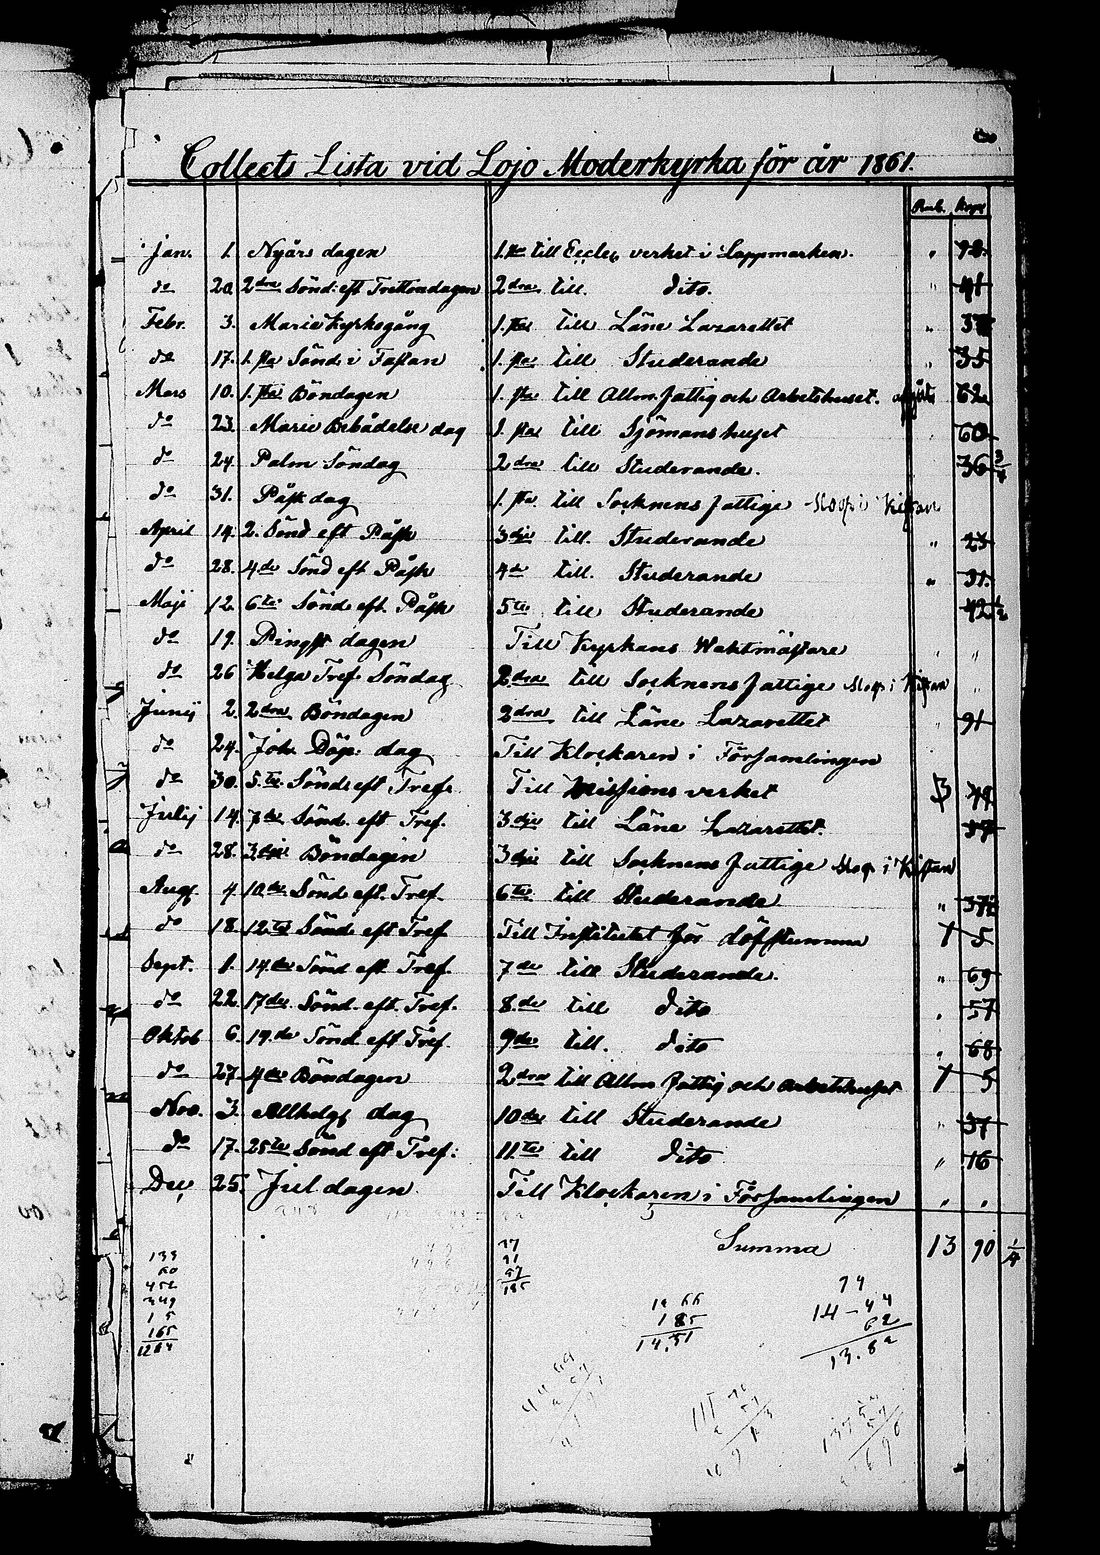 Collects Lista vid Lojo Moderkyrka för år 1861.
Rub. Kop.
Jan. 1. Nyårs dagen 1.sta till Eccles. verket i Lappmarken. "
do 20. 2dra Sönd: eft Trettondagen 2dra till. dito. " 41
Febr. 3. Mariæ Kyrkogång 1.sta till Läns Lazarettet "
do 17. 1.sta Sönd: i Fastan 1.sta till Studerande " 35
Mars 10. 1.sta Böndagen 1.sta till Allm. fattig och Arbetshuset. 62
do 23. Mariæ Bebådelse dag 1.sta till Sjömanshuset " 60
do 24. Palm Söndag 2dra till Studerande. 36 3/4
do 31. Påsk dag 1.sta till Socknens fattige
April 14. 2. Sönd eft Påsk 3dje till. Studerande " 23
do 28. 4de Sönd eft Påsk 4de till. Studerande " 31.
Maji 12. 6te Sönd eft. Påsk 5te till Studerande 42 1/2
do 19. Pingst dagen Till Kyrkans Waktmästare " "
do 26 Helga Tref. Söndag 2.dra till Socknens fattige "
Junij 2. 2dra Böndagen 2dra till Läns Lazarettet " 91
do 24. Joh: Döp: dag Till Klockaren i Församlingen
do 30. 5.te Sönd: eft Tref. Till Missions verket 3 49
Julij 14. 7de Sönd. eft Tref. 3dje till Läns Lazarettet. 57
do 28. 3dje Böndagen 3dje till Socknens fattige
Aug. 4. 10de Sönd eft. Tref. 6te till Studerande "
do 18. 12te Sönd eft Tref Till Institutet för döfstumma 1 5
Sept. 1. 14de Sönd eft Tref. 7de till Studerande. " 69
do 22. 17de Sönd. eft. Tref. 8de till dito " 57
Oktob 6. 19.de Sönd. eft Tref. 9de till. dito " 68
do 27. 4de Böndagen 2dra till Allm. fattig och arbetshuset 1 5
Nov. 3. Allhelg. dag 10de till Studerande " 37
do 17. 25te Sönd eft Tref: 11te till dito " 16
Dec. 25. Jul dagen. Till Klockaren i Församlingen " "
Summa 13 90 1/4
60
452
349
15
165
37
91
57
185
12 66
185
14.51
14-44
62
13.82